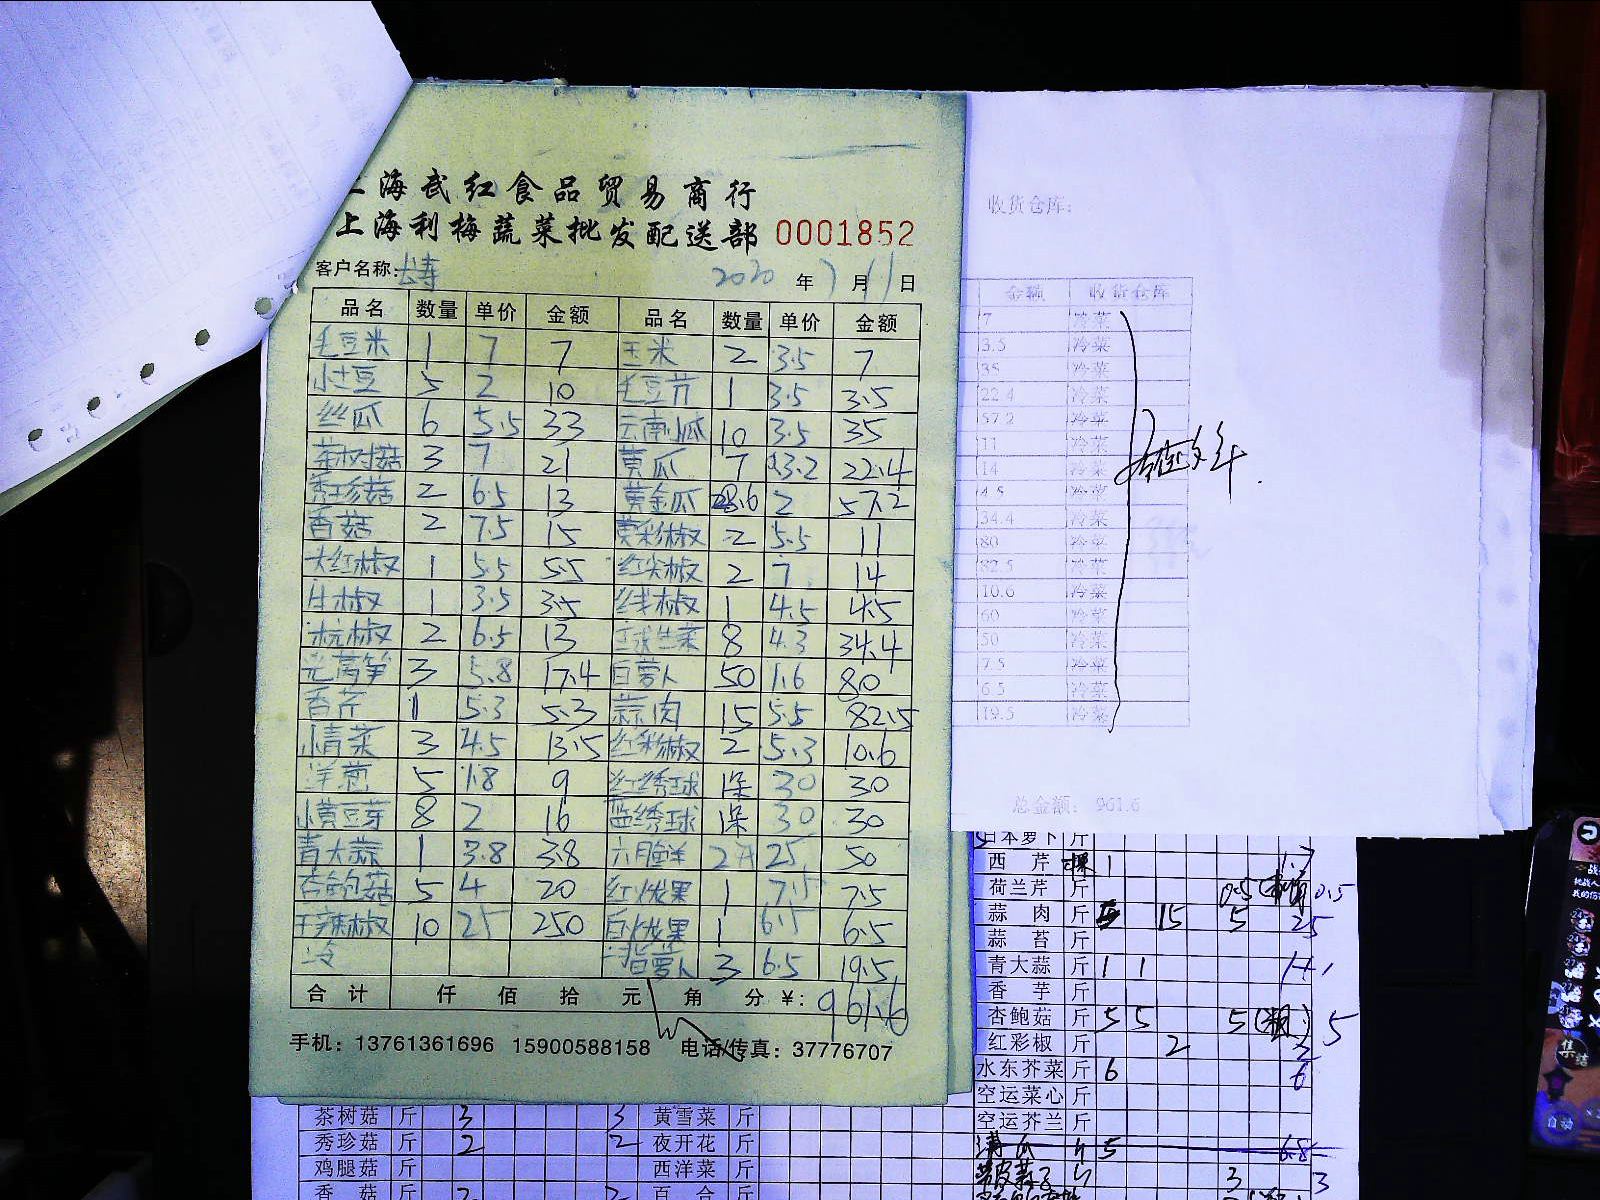 上海武红食品贸易商行
上海利梅蔬菜批发配送部 0001852
客户名称: 2020 年 7 月 11 日
品名 数量 单价 金额 品名 数量 单价 金额
毛豆米 1 7 7 玉米 2 3.5 7
小土豆 5 2 10 毛豆节 1 3.5 3.5
丝瓜 6 5.5 33 云南小瓜 10 3.5 35
茶树菇 3 7 21 黄瓜 7 3.2 22.4
秀珍菇 2 6.5 13 黄金瓜 28.6 2 57.2
香菇 2 7.5 15 黄彩椒 2 5.5 11
大红椒 1 5.5 5.5 红尖椒 2 7 14
牛椒 1 3.5 3.5 线椒 1 4.5 4.5
杭椒 2 6.5 13 球生菜 8 4.3 34.4
光莴笋 3 5.8 17.4 白萝卜 50 1.6 80
香芹 1 5.3 5.3 蒜肉 15 5.5 82.5
小青菜 3 4.5 13.5 红彩椒 2 5.3 10.6
洋葱 5 1.8 9 红绣球 1朵 30 30
小黄豆芽 8 2 16 蓝绣球 1朵 30 30
青大蒜 1 3.8 3.8 六月鲜 2 25 50
杏鲍菇 5 4 20 红火龙果 1 7.5 7.5
干辣椒 10 25 250 白火龙果 1 6.5 6.5
冷 萝卜 3 6.5 19.5
合计 仟 佰 拾 元 角 分 ¥: 961.6
手机: 13761361696 15900588158 电话/传真: 37776707
收货仓库:
金额 收货仓库
7 冷菜
3.5 冷菜
35 冷菜
22.4 冷菜
57.2 冷菜
11 冷菜
14 冷菜
4.5 冷菜
34.4 冷菜
80 冷菜
82.5 冷菜
10.6 冷菜
60 冷菜
50 冷菜
7.5 冷菜
6.5 冷菜
19.5 冷菜
总金额: 961.6
日本萝卜 斤
西芹 棵 1 1.7
荷兰芹 斤 0.5 0.5
蒜肉 斤 15 5 25
蒜苔 斤
青大蒜 斤 1 1
香芋 斤
杏鲍菇 斤 5 5 5 5
红彩椒 斤 2 2
水东芥菜 斤 6 6
空运菜心 斤
空运芥兰 斤
5 6.8
3 3
茶树菇 斤 3 3 黄雪菜 斤
秀珍菇 斤 2 2 夜开花 斤
鸡腿菇 斤 西洋菜 斤
香菇 斤 2 2 百合 斤
集结
自动